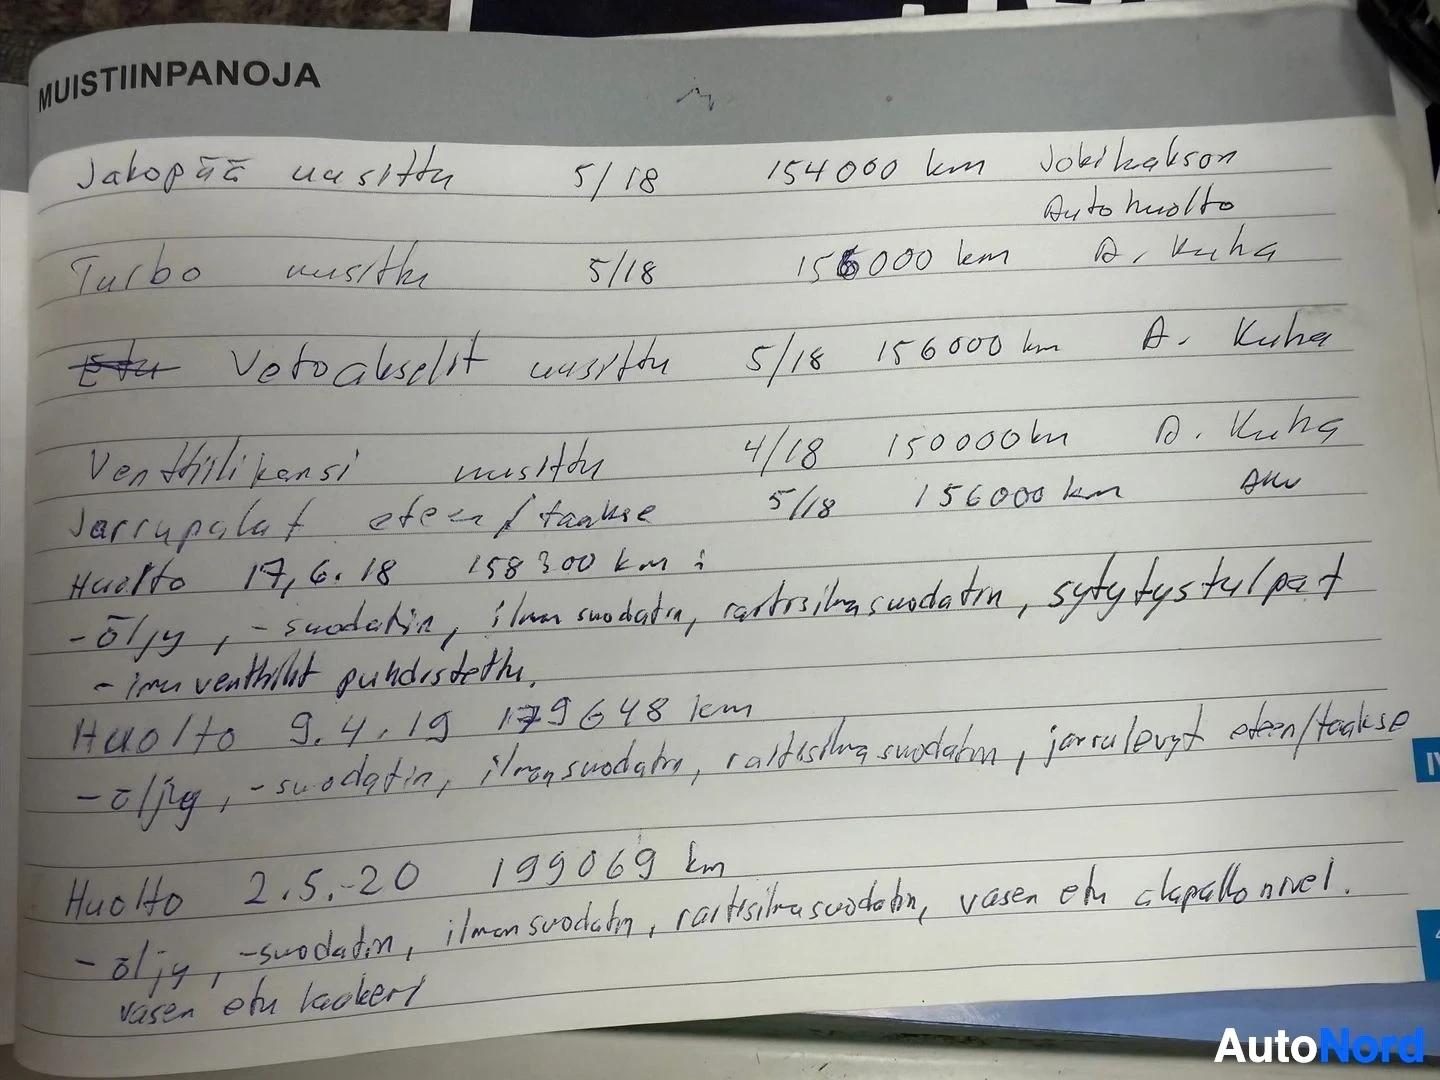 MUISTIINPANOJA
Jakopää uusittu 5/18 154000 km Jokikakson
Autohuolto
Turbo uusittu 5/18 156000 km A. Kuha
Etu Vetoakselit uusittu 5/18 156000 km A. Kuha
Venttiilikansi uusittu 4/18 150000 km A. Kuha
Jarrupalat eteen/taakse 5/18 156000 km AKu
Huolto 17.6.18 158300 km :
- öljy, -suodatin, ilmansuodatin, raitisilmasuodatin, sytytystulpat
- imuventtiilit puhdistettu.
Huolto 9.4.19 179648 km
- öljy, -suodatin, ilmansuodatin, raitisilmasuodatin, jarrulevyt eteen/taakse
Huolto 2.5.-20 199069 km
- öljy, -suodatin, ilmansuodatin, raitisilmasuodatin, vasen etu alapallonivel.
vasen etu laakeri
AutoNord